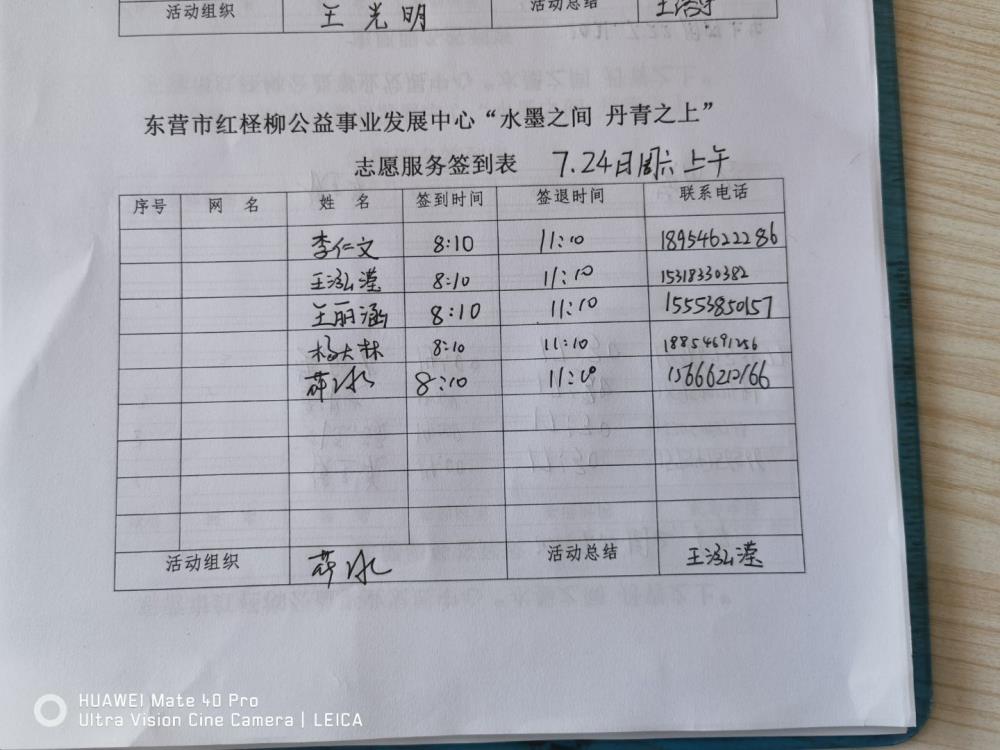 活动组织 王光明 活动总结
东营市红柽柳公益事业发展中心“水墨之间 丹青之上”
志愿服务签到表 7.24日周六上午
序号 网 名 姓 名 签到时间 签退时间 联系电话
李仁文 8:10 11:10 18954622286
王泓滢 8:10 11:10 15318330382
王丽涵 8:10 11:10 15553850157
杨大林 8:10 11:10 18854691256
薛冰 8:10 11:10 15666212166
活动组织 薛冰 活动总结 王泓滢
HUAWEI Mate 40 Pro
Ultra Vision Cine Camera | LEICA